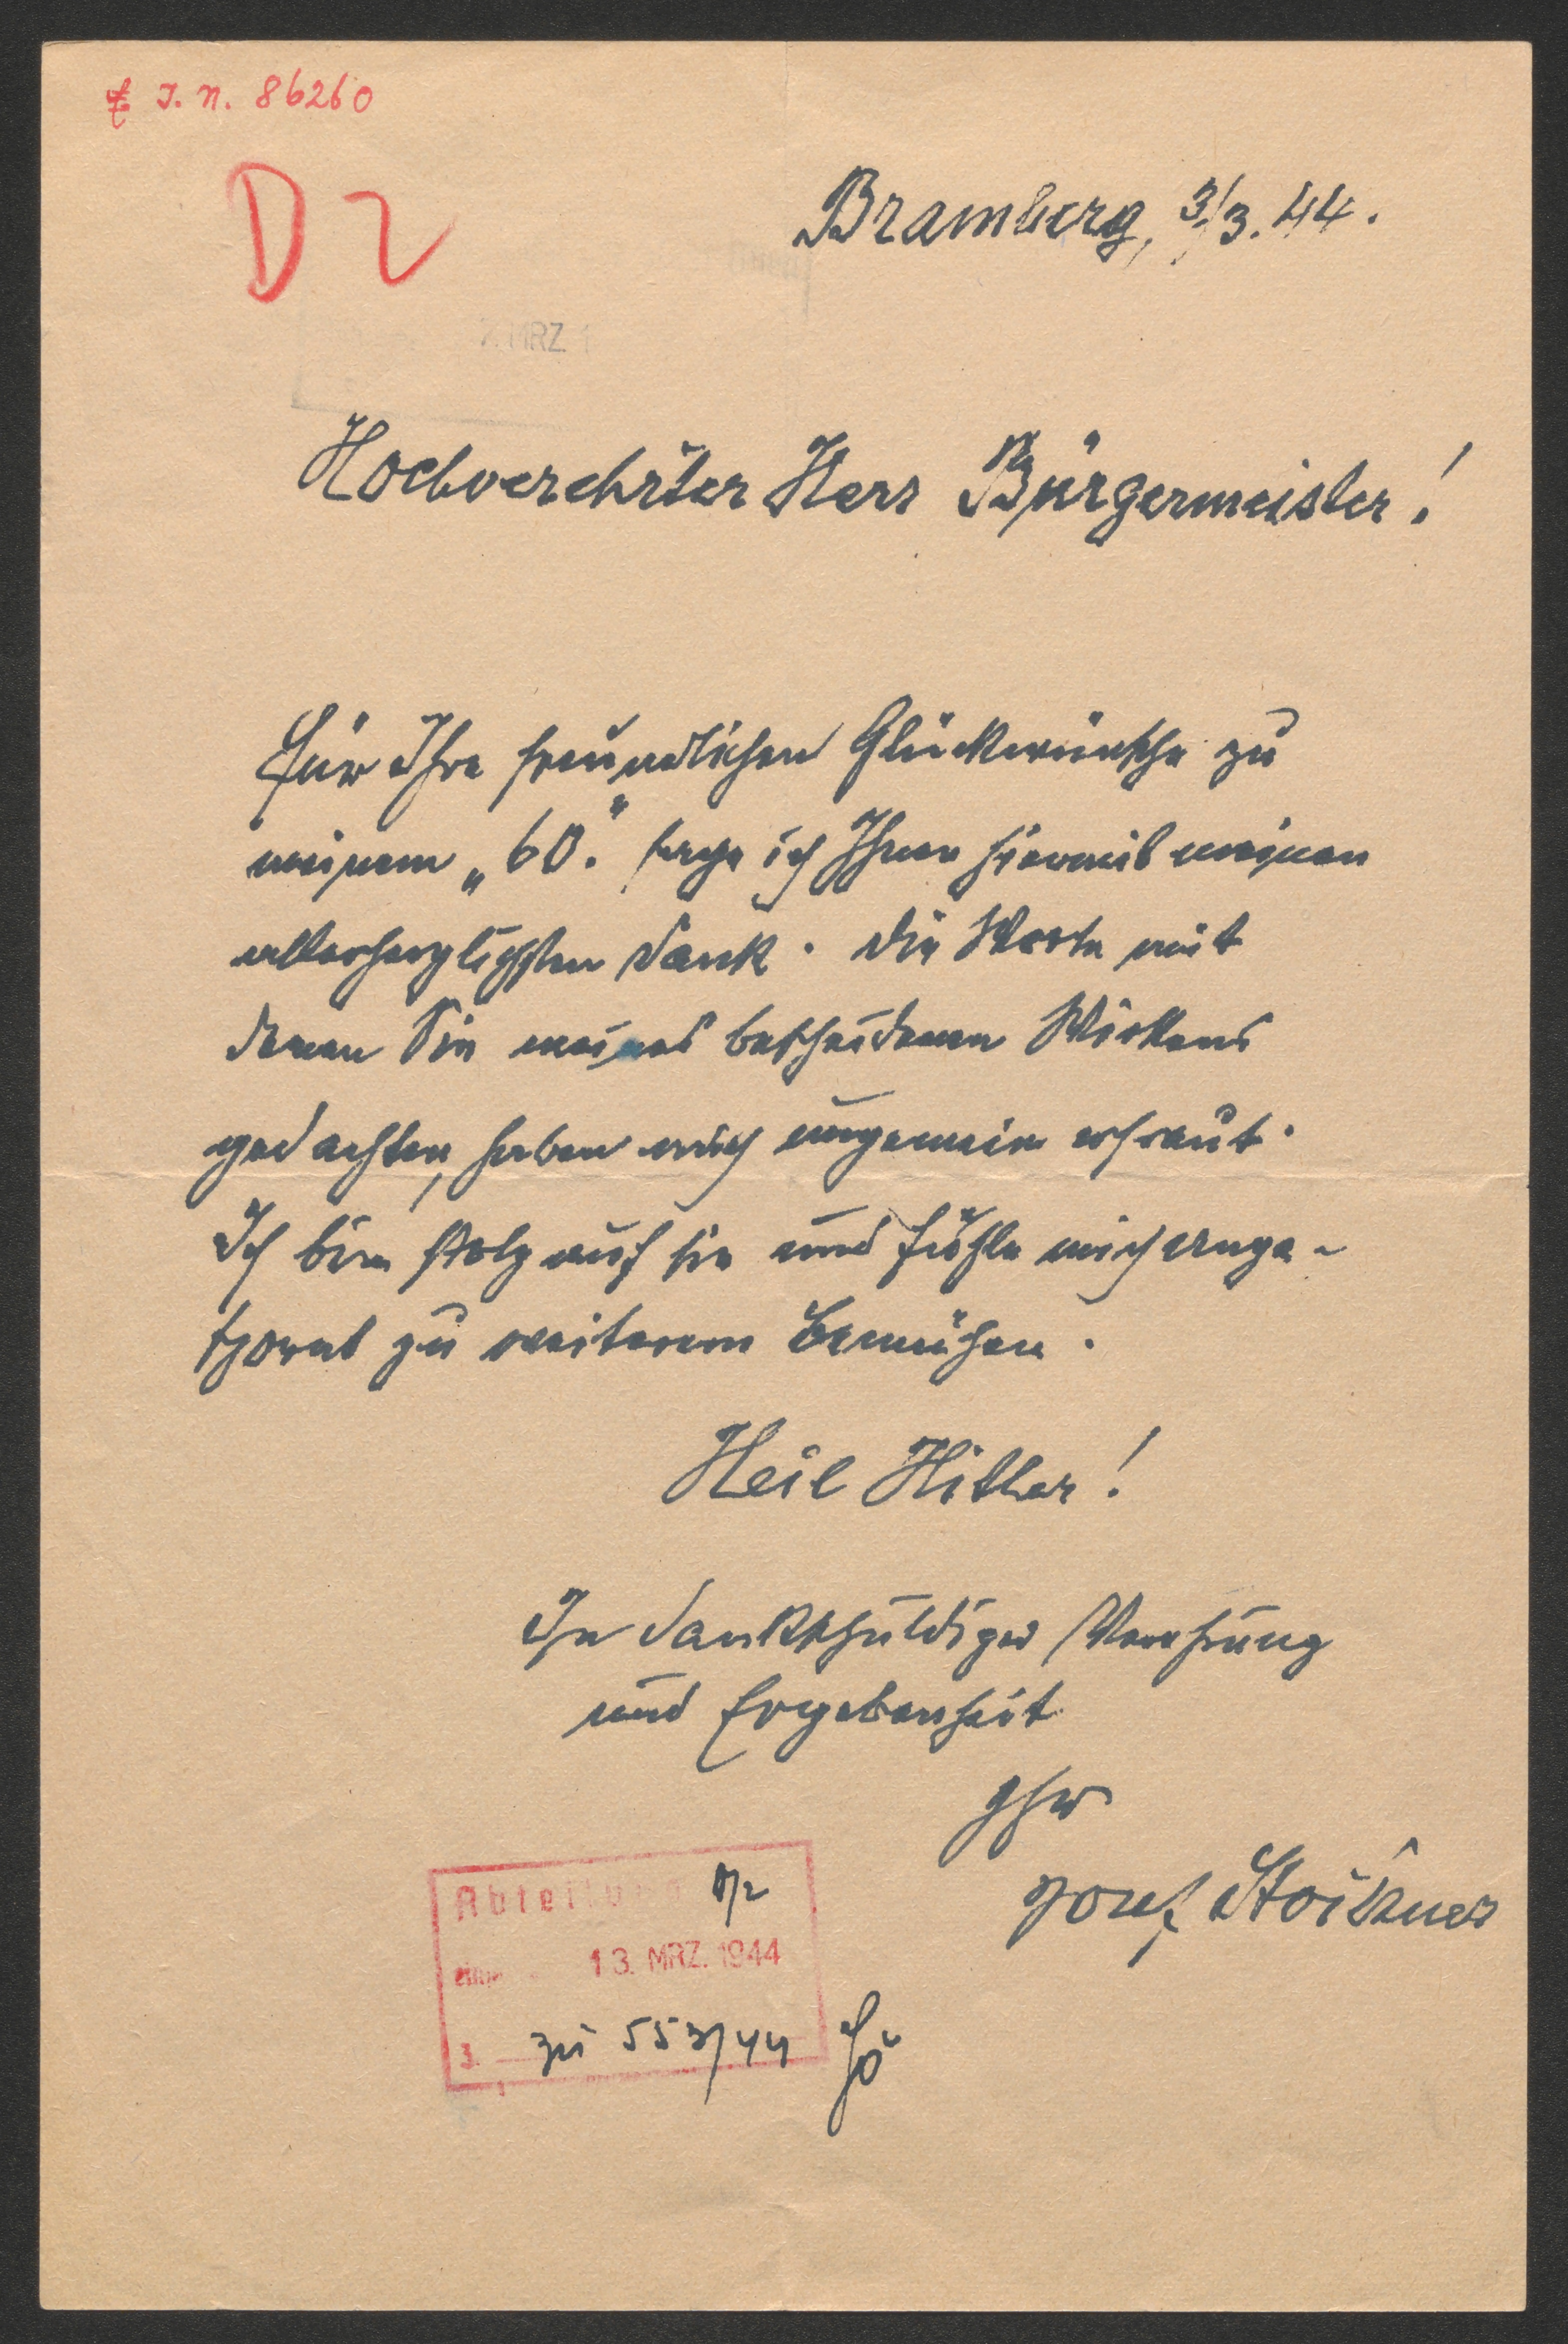 J. N. 86260
D 2
Bramberg, 3/3. 44.
7. MRZ. 1
Hochverehrter Herr Bürgermeister!
Für Ihre freundlichen Glückwünsche zu
meinem „60.“ sage ich Ihnen hiermit meinen
allerherzlichsten Dank. Die Worte mit
denen Sie meines bescheidenen Wirkens
gedachten, haben mich ungemein erfreut.
Ich bin stolz auf sie und fühle mich ange-
spornt zu weiterem Bemühen.
Heil Hitler!
In dankschuldiger Verehrung
und Ergebenheit
Ihr
Josef Stoibner
Abteilung D/2
13. MRZ. 1944
3. zu 553/44